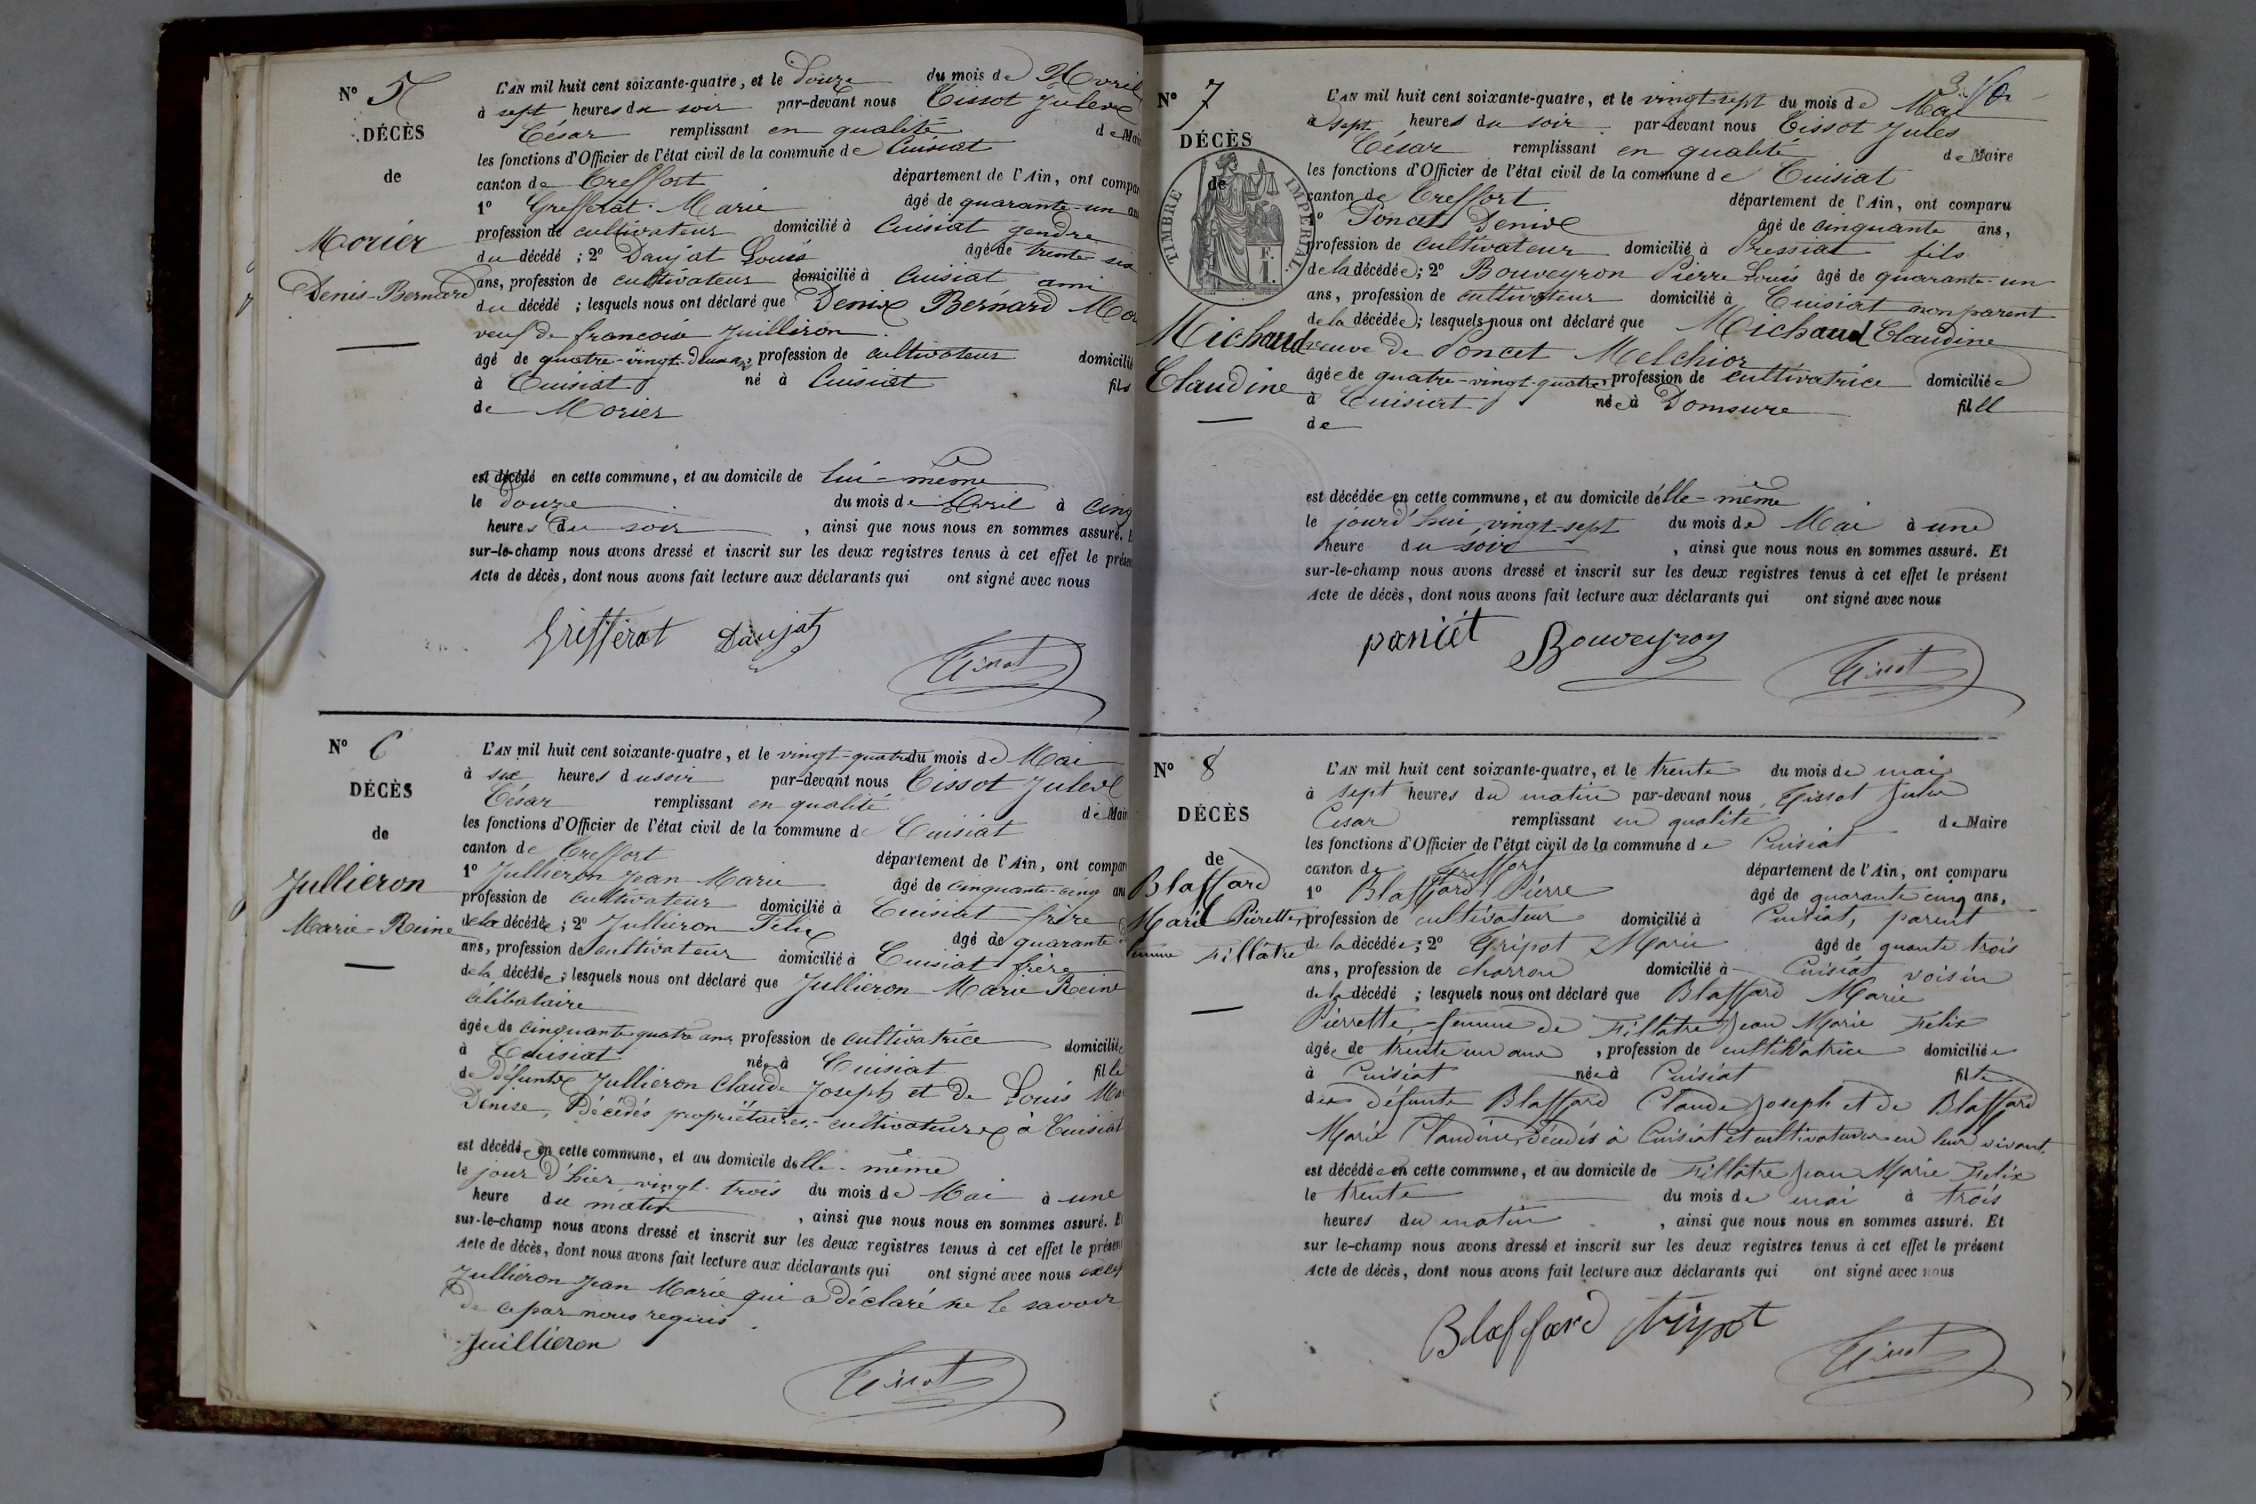 N° 5
DÉCÈS
de
Morier
Denis-Bernard
L'AN mil huit cent soixante-quatre, et le douze du mois de Avril
à sept heures du soir par-devant nous Tissot Jules
César remplissant en qualité de Mai
les fonctions d'Officier de l'état civil de la commune de Cuisiat
canton de Treffort département de l'Ain, ont compar
1° Grefferat Marie âgé de quarante-un an
profession de cultivateur domicilié à Cuisiat gendre
du décédé ; 2° Daujat Louis âgé de trente six
ans, profession de cultivateur domicilié à Cuisiat ami
du décédé ; lesquels nous ont déclaré que Denis Bernard Mor
veuf de francoise Juilliron
âgé de quatre-vingt-deux , profession de cultivateur domicilié
à Cuisiat né à Cuisiat fils
de Morier
est décédé en cette commune, et au domicile de lui-même
le douze du mois de Avril à cinq
heures du soir , ainsi que nous nous en sommes assuré. E
sur-le-champ nous avons dressé et inscrit sur les deux registres tenus à cet effet le présen
Acte de décès, dont nous avons fait lecture aux déclarants qui ont signé avec nous
Grefferat Daujat
Tissot
N° 6
DÉCÈS
de
Jullieron
Marie-Reine
L'AN mil huit cent soixante-quatre, et le vingt-quatre du mois de Mai
à six heures du soir par-devant nous Tissot Jules
César remplissant en qualité de Mair
les fonctions d'Officier de l'état civil de la commune de Cuisiat
canton de Treffort département de l'Ain, ont compar
1° Jullieron Jean Marie âgé de cinquante-cinq an
profession de cultivateur domicilié à Cuisiat frère
de la décédée ; 2° Jullieron Felix âgé de quarante
ans, profession de cultivateur domicilié à Cuisiat frère
de la décédée ; lesquels nous ont déclaré que Jullieron Marie Reine
célibataire
âgée de cinquante quatre ans profession de cultivatrice domiciliée
à Cuisiat née à Cuisiat fille
de défunts Jullieron Claude Joseph et de Louis Mar
Denise, Décédés propriétaires-cultivateurs à Cuisiat
est décédée en cette commune, et au domicile d'elle-même
le jour d'hier vingt-trois du mois de Mai à une
heure du matin , ainsi que nous nous en sommes assuré. Et
sur-le-champ nous avons dressé et inscrit sur les deux registres tenus à cet effet le présent
Acte de décès, dont nous avons fait lecture aux déclarants qui ont signé avec nous excep
Jullieron Jean Marie qui a déclaré ne le savoir
de ce par nous requis.
Juillieron
Tissot
N° 7
DÉCÈS
de
TIMBRE IMPÉRIAL.
Michaud
Claudine
L'AN mil huit cent soixante-quatre, et le vingt-sept du mois de Mai
à sept heures du soir par-devant nous Tissot Jules
César remplissant en qualité de Maire
les fonctions d'Officier de l'état civil de la commune de Cuisiat
canton de Treffort département de l'Ain, ont comparu
1° Poncet Denis âgé de cinquante ans,
profession de cultivateur domicilié à Pressiat fils
de la décédée ; 2° Bouveyron Pierre Louis âgé de quarante-un
ans, profession de cultivateur domicilié à Cuisiat non parent
de la décédée ; lesquels nous ont déclaré que Michaud Claudine
veuve de Poncet Melchior
âgée de quatre-vingt-quatre , profession de cultivatrice domiciliée
à Cuisiat née à Domsure fille
de
est décédée en cette commune, et au domicile d'elle-même
le jourd'hui vingt-sept du mois de Mai à une
heure du soir , ainsi que nous nous en sommes assuré. Et
sur-le-champ nous avons dressé et inscrit sur les deux registres tenus à cet effet le présent
Acte de décès, dont nous avons fait lecture aux déclarants qui ont signé avec nous
poncet Bouveyron
Tissot
N° 8
DÉCÈS
de
Blaffard
Marie Pierrette,
femme Fillâtre
L'AN mil huit cent soixante-quatre, et le trente du mois de mai
à sept heures du matin par-devant nous Tissot Jules
César remplissant en qualité de Maire
les fonctions d'Officier de l'état civil de la commune de Cuisiat
canton de Treffort département de l'Ain, ont comparu
1° Blaffard Pierre âgé de quarante cinq ans,
profession de cultivateur domicilié à Cuisiat, parent
de la décédée ; 2° Gripot Marie âgé de quante trois
ans, profession de charron domicilié à Cuisiat voisin
de la décédé ; lesquels nous ont déclaré que Blaffard Marie
Pierrette, femme de Fillâtre Jean Marie Felix
âgée de trente un ans , profession de cultivatrice domiciliée
à Cuisiat née à Cuisiat fille
des défunts Blaffard Claude Joseph et de Blaffard
Marie Claudine, décédés à Cuisiat et cultivateurs en leur vivant
est décédée en cette commune, et au domicile de Fillâtre Jean Marie Felix
le trente du mois de mai à trois
heures du matin , ainsi que nous nous en sommes assuré. Et
sur le-champ nous avons dressé et inscrit sur les deux registres tenus à cet effet le présent
Acte de décès, dont nous avons fait lecture aux déclarants qui ont signé avec nous
Blaffard Gripot
Tissot